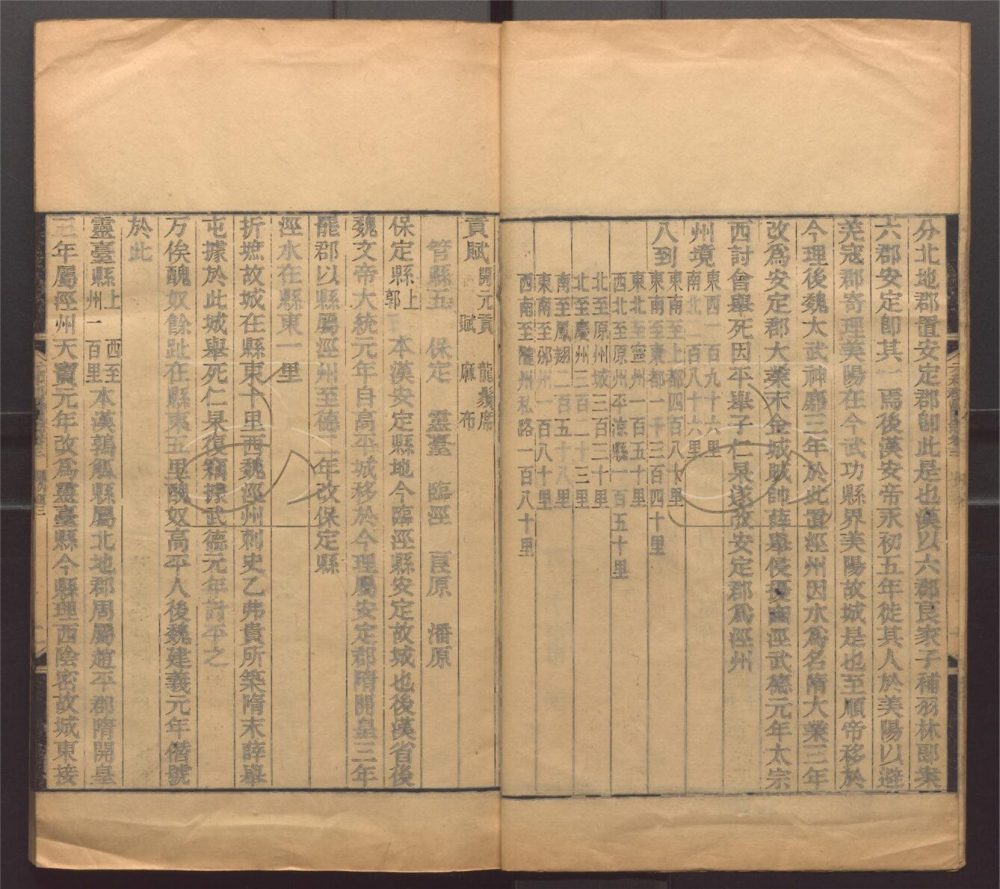 分北地郡置安定郡即此是也漢以六郡良家子補羽林郎案
六郡安定即其一焉後漢安帝永初五年徙其人於美陽以避
羌寇郡寄理美陽在今武功縣界美陽故城是也至順帝移於
今理後魏太武神䴥三年於此置涇州因水為名隋大業三年
改為安定郡大業末金城賊帥薛舉侵擾豳涇武德元年太宗
西討會舉死因平舉子仁杲遂改安定郡為涇州
州境東西一百九十六里
南北一百八十六里
八到東南至上都四百八十里
東南至東都一千三百四十里
東北至寧州一百五十里
西北至原州平涼縣一百五十里
北至原州城三百二十里
北至慶州三百二十三里
南至鳳翔二百五十八里
東南至邠州一百八十里
西南至隴州私路一百八十里
貢賦開元貢龍鬚席
賦麻布
管縣五保定 靈臺 臨涇 良原 潘原
保定縣上郭本漢安定縣地今臨涇縣安定故城也後漢省後
魏文帝大統元年自高平城移於今理屬安定郡隋開皇三年
罷郡以縣屬涇州至德二年改保定縣
涇水在縣東一里
折墌故城在縣東十里西魏涇州刺史乙弗貴所築隋末薛舉
屯據於此城舉死仁杲復竊據武德元年討平之
万俟醜奴餘趾在縣東五里醜奴高平人後魏建義元年僭號
於此
靈臺縣上西至州一百里本漢鶉觚縣屬北地郡周屬趙平郡隋開皇
三年屬涇州天寶元年改為靈臺縣今縣理西陰密故城東接